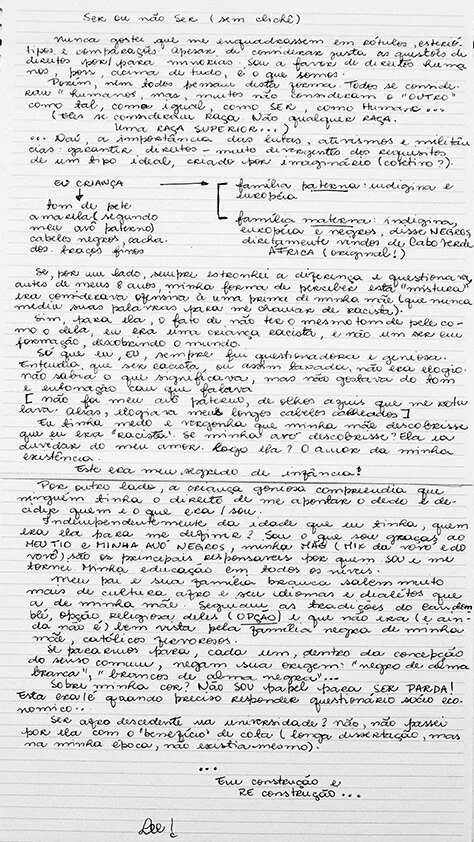 Ser ou não Ser (sem clichê)
Nunca gostei que me enquadrassem em rótulos, estereó
tipos e comparações apesar de considerar justa as questões de
direitos por/para minorias. Sou a favor de direitos huma
nos, pois, acima de tudo, é o que somos.
Porém, nem todos pensam desta forma. Todos se conside
ram "humanos", mas, muitos não consideram o "OUTRO"
como tal, como igual, como SER, como Humano...
(Eles se consideram RAÇA. Não qualquer RAÇA.
Uma RAÇA SUPERIOR...)
... Daí, a importância das lutas, ativismos e militân
cias: garantir direitos - muito divergentes dos requisitos
de um tipo ideal, criado por imaginário (coletivo?).
EU CRIANÇA
família paterna: indígena e
européia
tom de pele
amarela (segundo
meu avô paterno)
cabelos negros, cacha
dos. traços finos
família materna: indígina,
européia e negros, disse NEGROS
diretamente vindos de Cabo Verde
ÁFRICA (original!)
Se, por um lado, sempre estranhei a diferença e questionava,
antes de meus 8 anos, minha forma de perceber esta "mistura"
era considerava ofensiva à uma prima de minha mãe (que nunca
mediu suas palavras para me chamar de racista).
Sim, para ela, o fato de não ter o mesmo tom de pele co
mo o dela, eu era uma criança racista, e não um ser em
formação, descobrindo o mundo.
Só que eu, EU, sempre fui questionadora e geniosa.
Entendia, que ser racista, ou assim taxada, não era elogio.
não sabia o que significava, mas não gostava do tom
e entonação em que falava
[não foi meu avô paterno, de olhos azuis que me rotu
lava. aliás, elogiava meus longos cabelos cacheados]
Eu tinha medo e vergonha que minha mãe descobrisse
que eu era "racista". Se minha avó descobrisse? Ela ia
duvidar do meu amor. Logo ela? O amor da minha
existência
Este era meu segredo de infância!
Por outro lado, a criança geniosa compreendia que
ninguém tinha o direito de me apontar o dedo e de-
cidir quem e o que era/sou.
Independentemente da idade que eu tinha, quem
era ela para me definir? Sou o que sou graças ao
MEU TIO e MINHA AVÓ NEGROS, minha MÃE (MIX da vovó e do
vovô), são os principais responsáveis por quem sou e me
tornei. Minha educação em todos os níveis.
Meu pai e sua família branca sabem muito
mais de cultura afro e seu idiomas e dialetos que
a de minha mãe. Seguiam as tradições do candom
blé, opção religiosa deles (OPÇÃO) e que não era (e ain-
da não é) bem vista pela família negra de minha
mãe, católicos fervorosos.
Se pararmos para, cada um, dentro da concepção
do senso comum, negam sua origem: "negro de alma
branca", "brancos de alma negra"...
Sobre minha cor? Não sou papel para SER PARDA!
Esta ora! é quando preciso responder questionário sócio eco
nômico...
Ser afro descedente na universidade? não, não passei
por ela com o 'benefício' de cota (longa dissertação, mas
na minha época, não existia mesmo).
...
Em construção e
RE construção...